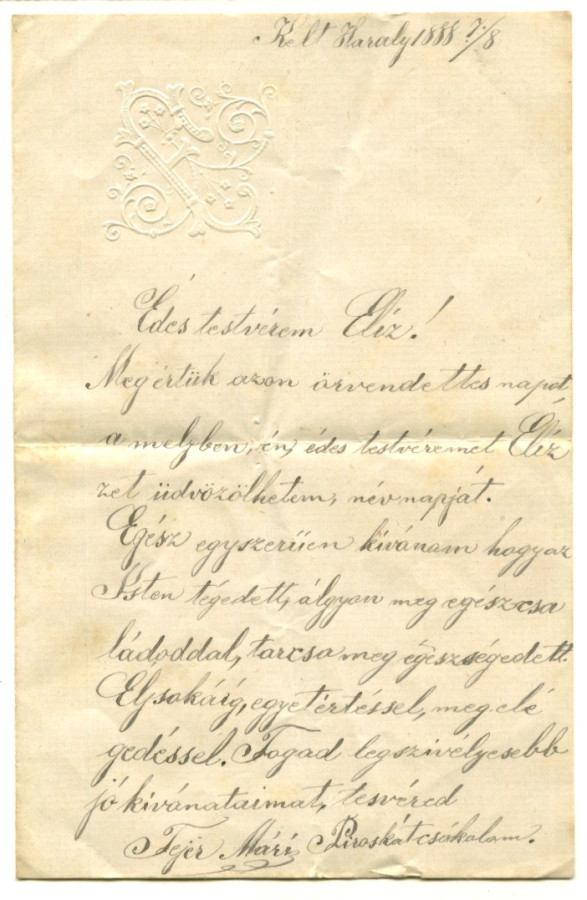 Kelt Haraly 1888 7/8
Édes testvérem Elíz!
Megértük azon örvendettes napot
a melyben, én, édes testvéremet Elíz
zet üdvözölhetem, névnapját.
Egész egyszerüen kivánom hogy az
Isten tégedett, álgyon meg egész csa
ládoddal, tarcsa meg egészségedett.
Elj sokáig, egyetértéssel, meg elé
gedéssel. Fogad legszivélyesebb
jó kivánataimat, tesvéred
Fejér Mári Piroskát csókolom.